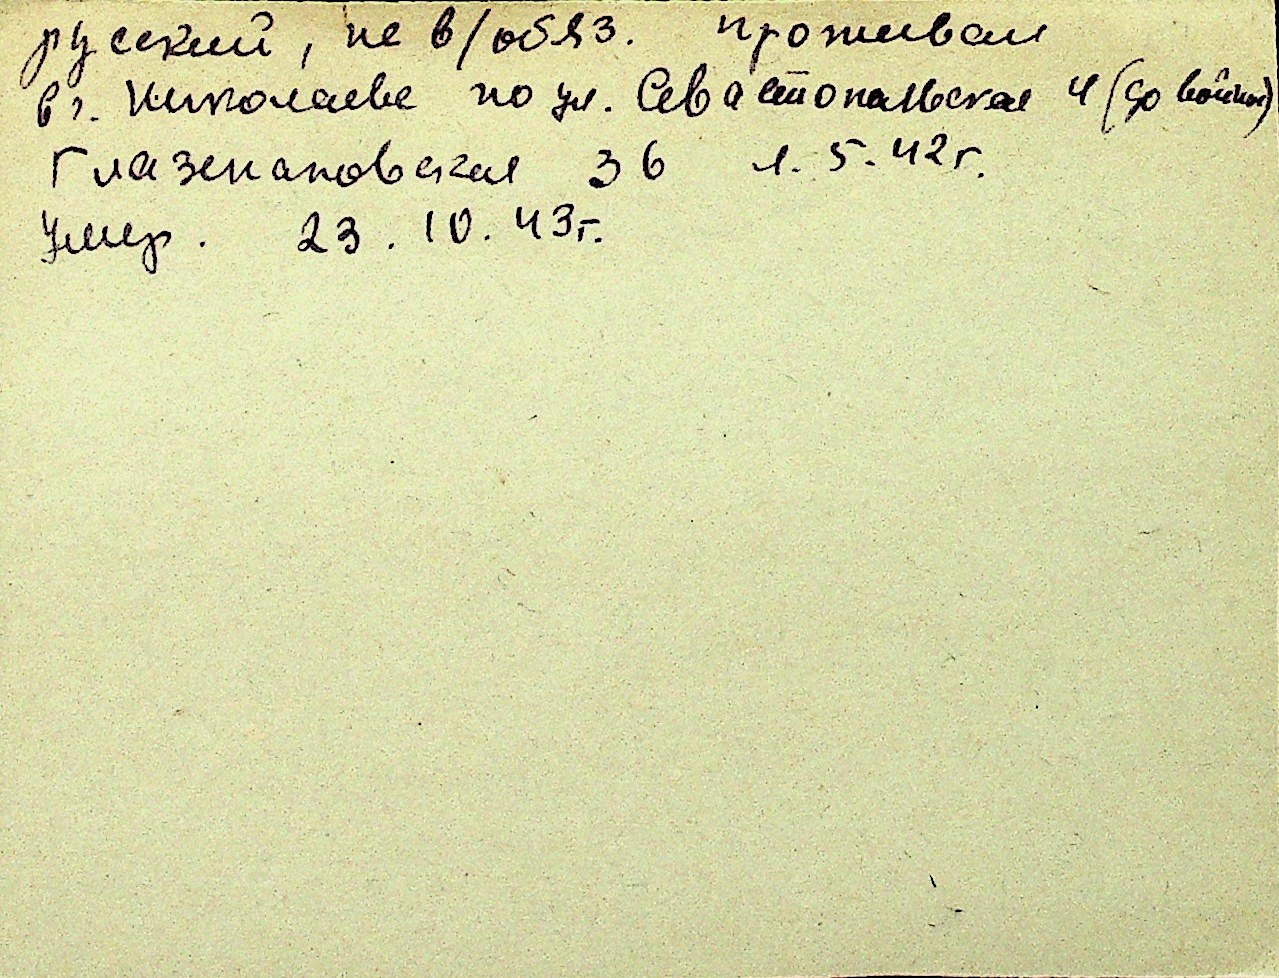 русский, не в/обяз. проживал
в г. Николаеве по ул. Севастопольская 4 (до войны)
Глазенаповская 36 1. 5. 42г.
Умер. 23. 10. 43г.